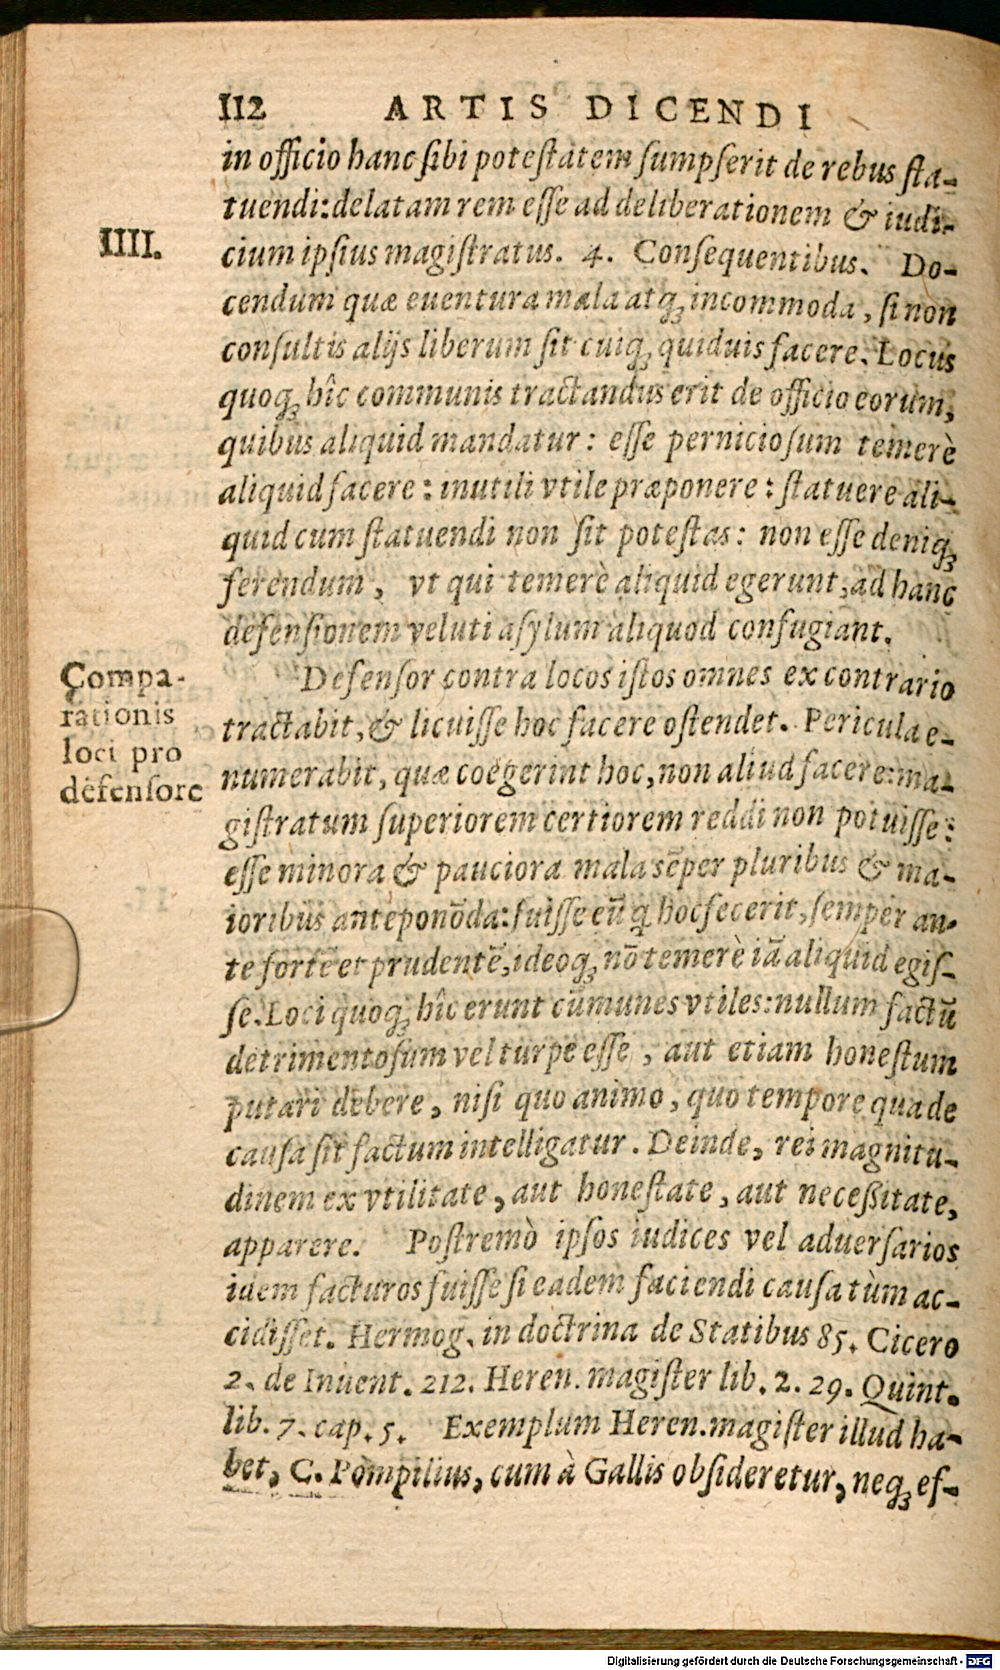 112 ARTIS DICENDI
in officio hanc sibi potestatem sumpserit de rebus sta-
tuendi: delatam rem esse ad deliberationem & iudi-
IIII.
cium ipsius magistratus. 4. Consequentibus. Do-
cendum quæ euentura mala atq; incommoda, si non
consultis alijs liberum sit cuiq; quiduis facere. Locus
quoq; hîc communis tractandus erit de officio eorum,
quibus aliquid mandatur: esse perniciosum temerè
aliquid facere: inutili vtile præponere: statuere ali-
quid cum statuendi non sit potestas: non esse deniq;
ferendum, vt qui temerè aliquid egerunt, ad hanc
defensionem veluti asylum aliquod confugiant.
Compa-
rationis
loci pro
defensore
Defensor contra locos istos omnes ex contrario
tractabit, & licuisse hoc facere ostendet. Pericula e-
numerabit, quæ coëgerint hoc, non aliud facere: ma-
gistratum superiorem certiorem reddi non potuisse:
esse minora & pauciora mala sẽper pluribus & ma-
ioribus anteponõda: fuisse eũ q hoc fecerit, semper an-
te fortẽ et prudentẽ, ideoq; nõ temerè iã aliquid egis-
se. Loci quoq; hîc erunt cũmunes vtiles: nullum factũ
detrimentosum vel turpe esse, aut etiam honestum
putari debere, nisi quo animo, quo tempore qua de
causa sit factum intelligatur. Deinde, rei magnitu-
dinem ex vtilitate, aut honestate, aut necessitate,
apparere. Postremò ipsos iudices vel aduersarios
idem facturos fuisse si eadem faciendi causa tùm ac-
cidisset. Hermog. in doctrina de Statibus 85. Cicero
2. de Inuent. 212. Heren. magister lib. 2. 29. Quint.
lib. 7. cap. 5. Exemplum Heren. magister illud ha-
bet, C. Pompilius, cum à Gallis obsideretur, neq; ef-
Digitalisierung gefördert durch die Deutsche Forschungsgemeinschaft - DFG